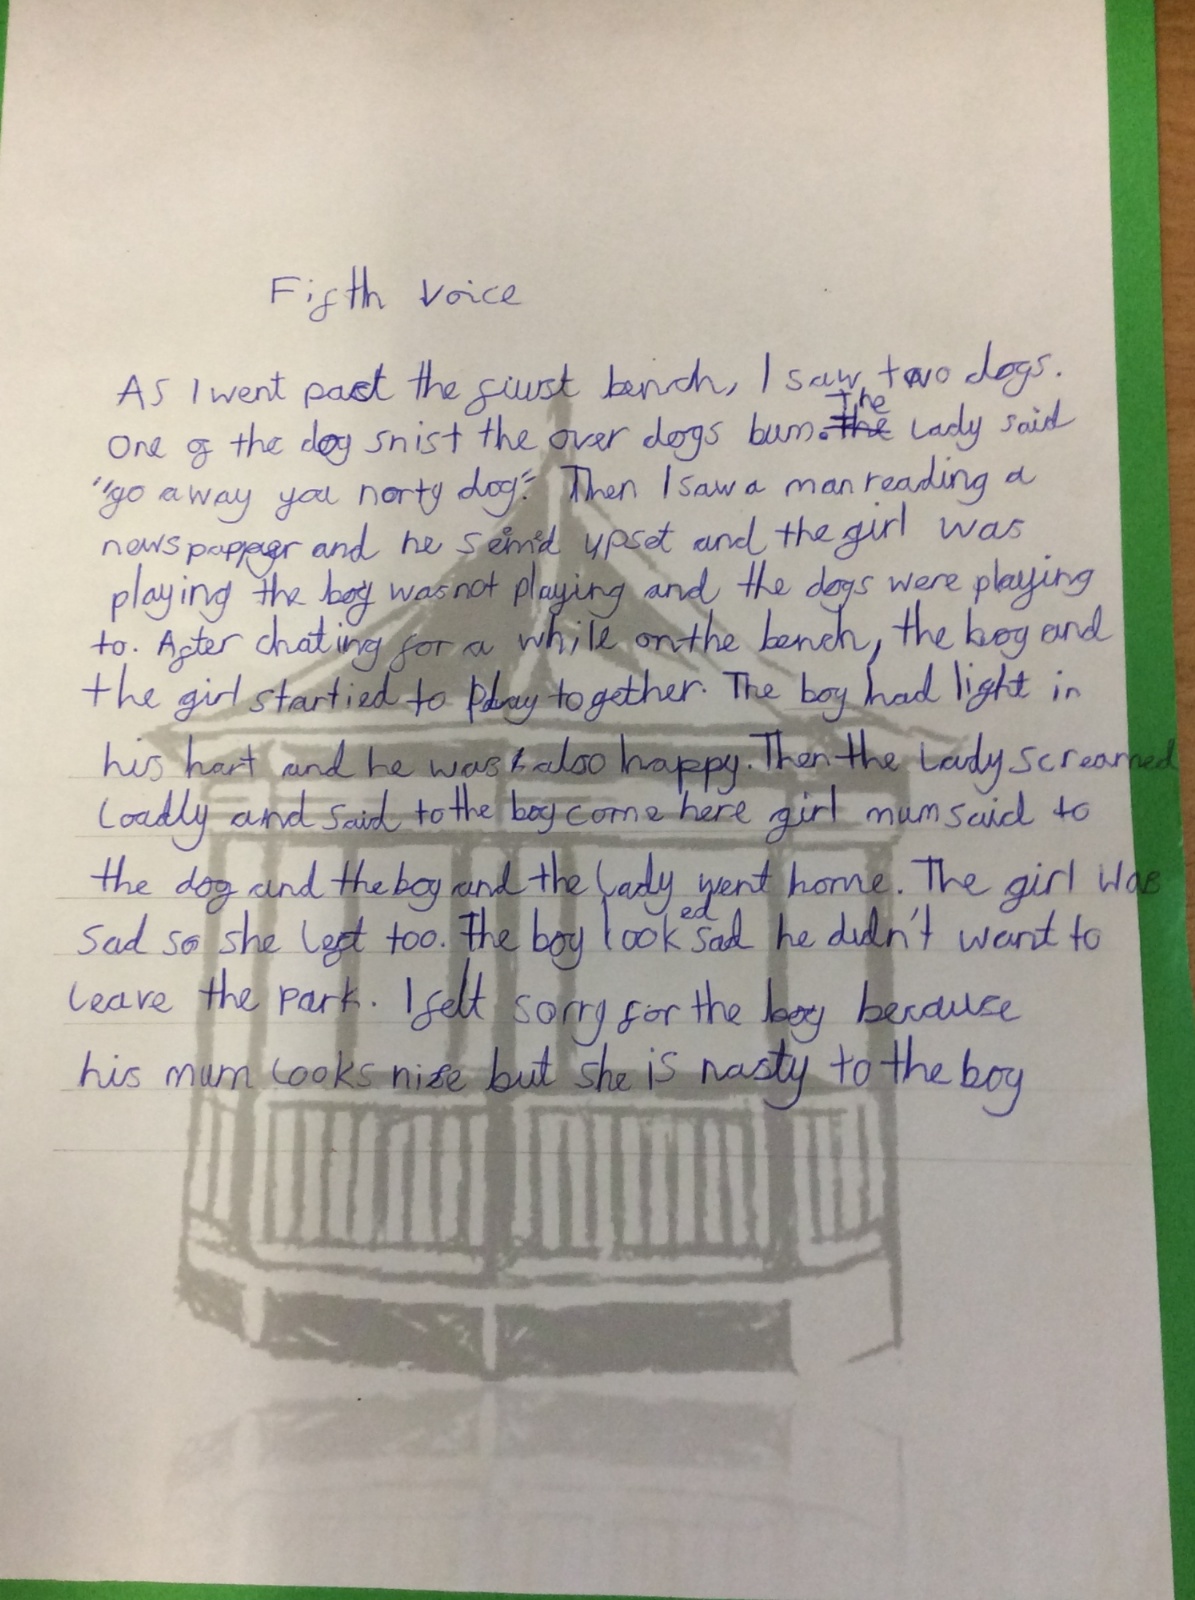 Fifth Voice
As I went past the fiwst bench, I saw two dogs.
One of the dog snist the over dogs bum. The Lady said
"go away you norty dog." Then I saw a man reading a
news papper and he semd upset and the girl was
playing the boy was not playing and the dogs were playing
to. After chating for a while on the bench, the boy and
the girl startied to play together. The boy had light in
his hart and he was also happy. Then the Lady screamed
Loadly and said to the boy come here girl mum said to
the dog and the boy and the Lady went home. The girl was
sad so she left too. The boy looked sad he didn't want to
leave the park. I felt sorry for the boy because
his mum looks nise but she is nasty to the boy